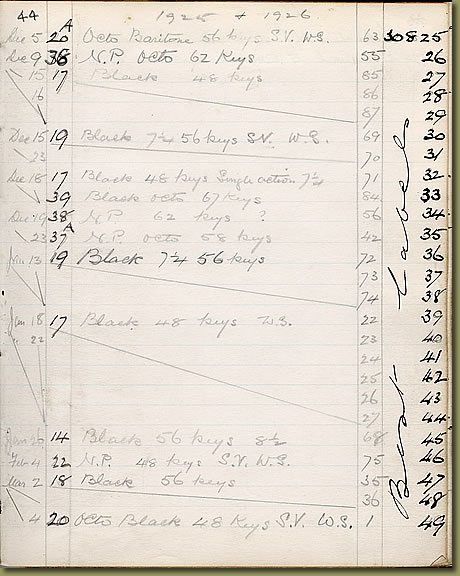 44 1925 + 1926
A
Dec 5 20 Octo Baritone 56 keys S.V. W.S. 63 30825
Dec 9 36 N.P. Octo 62 Keys 55 26
15 17 Black 48 keys 85 27
16 86 28
87 29
Dec 15 19 Black 7¼ 56 keys S.V. W.S. 69 30
23 70 31
Dec 18 17 Black 48 keys Single action 7¼ 71 32
39 Black octo 67 keys 84 33
Dec 19 38 N.P. 62 keys ? 56 34
A
23 37 N.P. octo 58 keys 42 35
13 19 Black 7¼ 56 keys 72 36
73 37
74 38
Jan 18 17 Black 48 keys W.S. 22 39
22 23 40
24 41
25 42
26 43
27 44
14 Black 56 keys 8½ 68 45
Feb 4 22 N.P. 48 keys S.V. W.S. 75 46
Mar 2 18 Black 56 keys 35 47
36 48
4 20 Octo Black 48 Keys S.V. W.S. 1 49
Labels